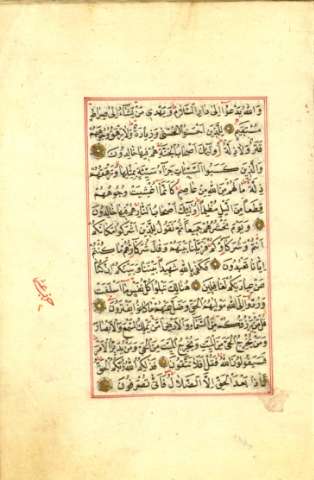 وَاللّٰهُ يَدْعُوا اِلٰى دَارِ السَّلَامِ وَيَهْدِي مَنْ يَشَاءُ اِلٰى صِرَاطٍ
مُسْتَقِيمٍ لِلَّذِينَ اَحْسَنُوا الْحُسْنٰى وَزِيَادَةٌ وَلَا يَرْهَقُ وُجُوهَهُمْ
قَتَرٌ وَلَا ذِلَّةٌ اُولٰئِكَ اَصْحَابُ الْجَنَّةِ هُمْ فِيهَا خَالِدُونَ
وَالَّذِينَ كَسَبُوا السَّيِّئَاتِ جَزَاءُ سَيِّئَةٍ بِمِثْلِهَا وَتَرْهَقُهُمْ
ذِلَّةٌ مَا لَهُمْ مِنَ اللّٰهِ مِنْ عَاصِمٍ كَاَنَّمَا اُغْشِيَتْ وُجُوهُهُمْ
قِطَعًا مِنَ الَّيْلِ مُظْلِمًا اُولٰئِكَ اَصْحَابُ النَّارِ هُمْ فِيهَا خَالِدُونَ
وَيَوْمَ نَحْشُرُهُمْ جَمِيعًا ثُمَّ نَقُولُ لِلَّذِينَ اَشْرَكُوا مَكَانَكُمْ
اَنْتُمْ وَشُرَكَاؤُكُمْ فَزَيَّلْنَا بَيْنَهُمْ وَقَالَ شُرَكَاؤُهُمْ مَا كُنْتُمْ
اِيَّانَا تَعْبُدُونَ فَكَفٰى بِاللّٰهِ شَهِيدًا بَيْنَنَا وَبَيْنَكُمْ اِنْ كُنَّا
عَنْ عِبَادَتِكُمْ لَغَافِلِينَ هُنَالِكَ تَبْلُوا كُلُّ نَفْسٍ مَا اَسْلَفَتْ
وَرُدُّوا اِلَى اللّٰهِ مَوْلٰيهُمُ الْحَقِّ وَضَلَّ عَنْهُمْ مَا كَانُوا يَفْتَرُونَ
قُلْ مَنْ يَرْزُقُكُمْ مِنَ السَّمَاءِ وَالْاَرْضِ اَمَّنْ يَمْلِكُ السَّمْعَ وَالْاَبْصَارَ
وَمَنْ يُخْرِجُ الْحَيَّ مِنَ الْمَيِّتِ وَيُخْرِجُ الْمَيِّتَ مِنَ الْحَيِّ وَمَنْ يُدَبِّرُ الْاَمْرَ
فَسَيَقُولُونَ اللّٰهُ فَقُلْ اَفَلَا تَتَّقُونَ فَذٰلِكُمُ اللّٰهُ رَبُّكُمُ الْحَقُّ
فَمَاذَا بَعْدَ الْحَقِّ اِلَّا الضَّلَالُ فَاَنّٰى تُصْرَفُونَ